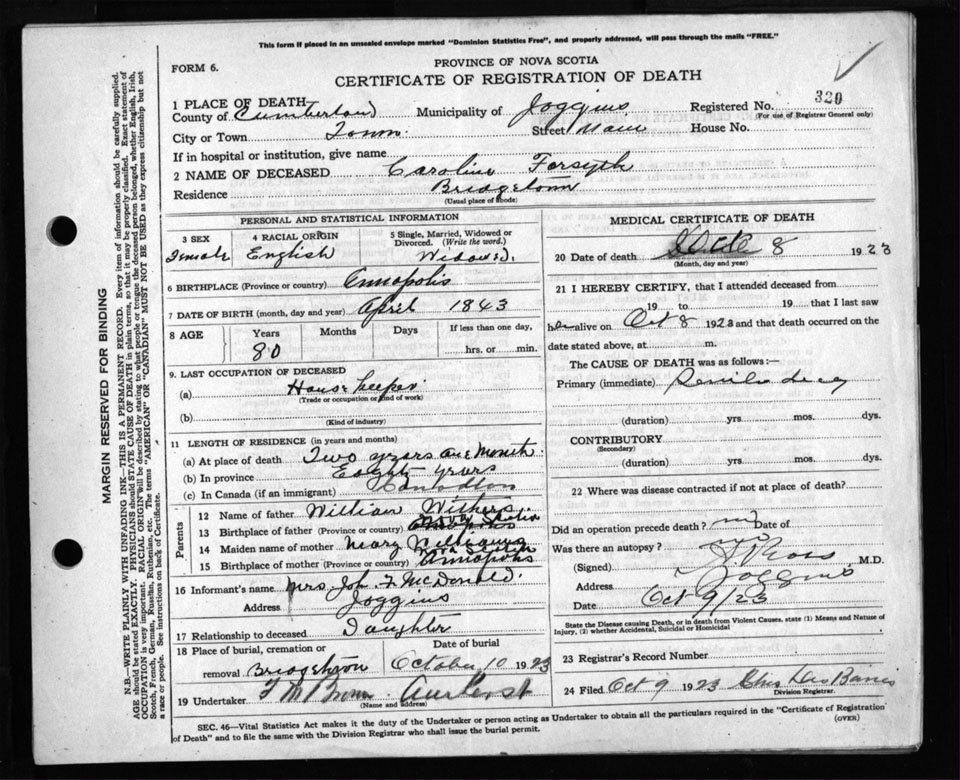 This form if placed in an unsealed envelope marked "Dominion Statistics Free", and properly addressed, will pass through the mails "FREE."
FORM 6.
PROVINCE OF NOVA SCOTIA
CERTIFICATE OF REGISTRATION OF DEATH
1 PLACE OF DEATH
County of Cumberland Municipality of Joggins Registered No. 320
(For use of Registrar General only)
City or Town Town Street Main House No.
If in hospital or institution, give name
2 NAME OF DECEASED Caroline Forsyth
Residence Bridgetown
(Usual place of abode)
PERSONAL AND STATISTICAL INFORMATION
3 SEX Female
4 RACIAL ORIGIN English
5 Single, Married, Widowed or Divorced. (Write the word.) Widowed.
6 BIRTHPLACE (Province or country) Annapolis
7 DATE OF BIRTH (month, day and year) April 1843
8 AGE Years 80 Months Days If less than one day, hrs. or min.
9. LAST OCCUPATION OF DECEASED
(a) House keeper
(Trade or occupation or kind of work)
(b)
(Kind of industry)
11 LENGTH OF RESIDENCE (in years and months)
(a) At place of death Two years one Month.
(b) In province Eaght years
(c) In Canada (if an immigrant)
Parents
12 Name of father William Withers
13 Birthplace of father (Province or country) Nova Scotia
14 Maiden name of mother Mary Williams
15 Birthplace of mother (Province or country) Nova Scotia Annapolis
16 Informant's name Mrs John F McDonald.
Address Joggins
17 Relationship to deceased Daughter
18 Place of burial, cremation or removal Bridgetown
Date of burial October 10 1923
19 Undertaker F M Brown Amherst
(Name and address)
MEDICAL CERTIFICATE OF DEATH
20 Date of death 8 1923
(Month, day and year)
21 I HEREBY CERTIFY, that I attended deceased from
19 to 19 that I last saw
her alive on Oct 8 1923 and that death occurred on the
date stated above, at m.
The CAUSE OF DEATH was as follows:—
Primary (immediate)
(duration) yrs. mos. dys.
CONTRIBUTORY
(Secondary)
(duration) yrs. mos. dys.
22 Where was disease contracted if not at place of death?
Did an operation precede death? no Date of
Was there an autopsy? no
(Signed) Ross M.D.
Address Joggins
Date Oct 9/23
State the Disease causing Death, or in death from Violent Causes, state (1) Means and Nature of Injury, (2) whether Accidental, Suicidal or Homicidal
23 Registrar's Record Number
24 Filed Oct 9 1923
Division Registrar.
SEC. 46—Vital Statistics Act makes it the duty of the Undertaker or person acting as Undertaker to obtain all the particulars required in the "Certificate of Registration
of Death" and to file the same with the Division Registrar who shall issue the burial permit.
(OVER)
MARGIN RESERVED FOR BINDING
N.B.—WRITE PLAINLY WITH UNFADING INK—THIS IS A PERMANENT RECORD. Every item of information should be carefully supplied.
AGE should be stated EXACTLY. PHYSICIANS should STATE CAUSE OF DEATH in plain terms, so that it may be properly classified. Exact statement of
OCCUPATION is very important. RACIAL ORIGIN will be described by stating to what people or tongue the deceased person belonged, whether English, Irish,
Scotch, French, German, Russian, Ruthenian, etc. The terms "AMERICAN" OR "CANADIAN" MUST NOT BE USED as they express citizenship but not
a race or people. See instructions on back of Certificate.